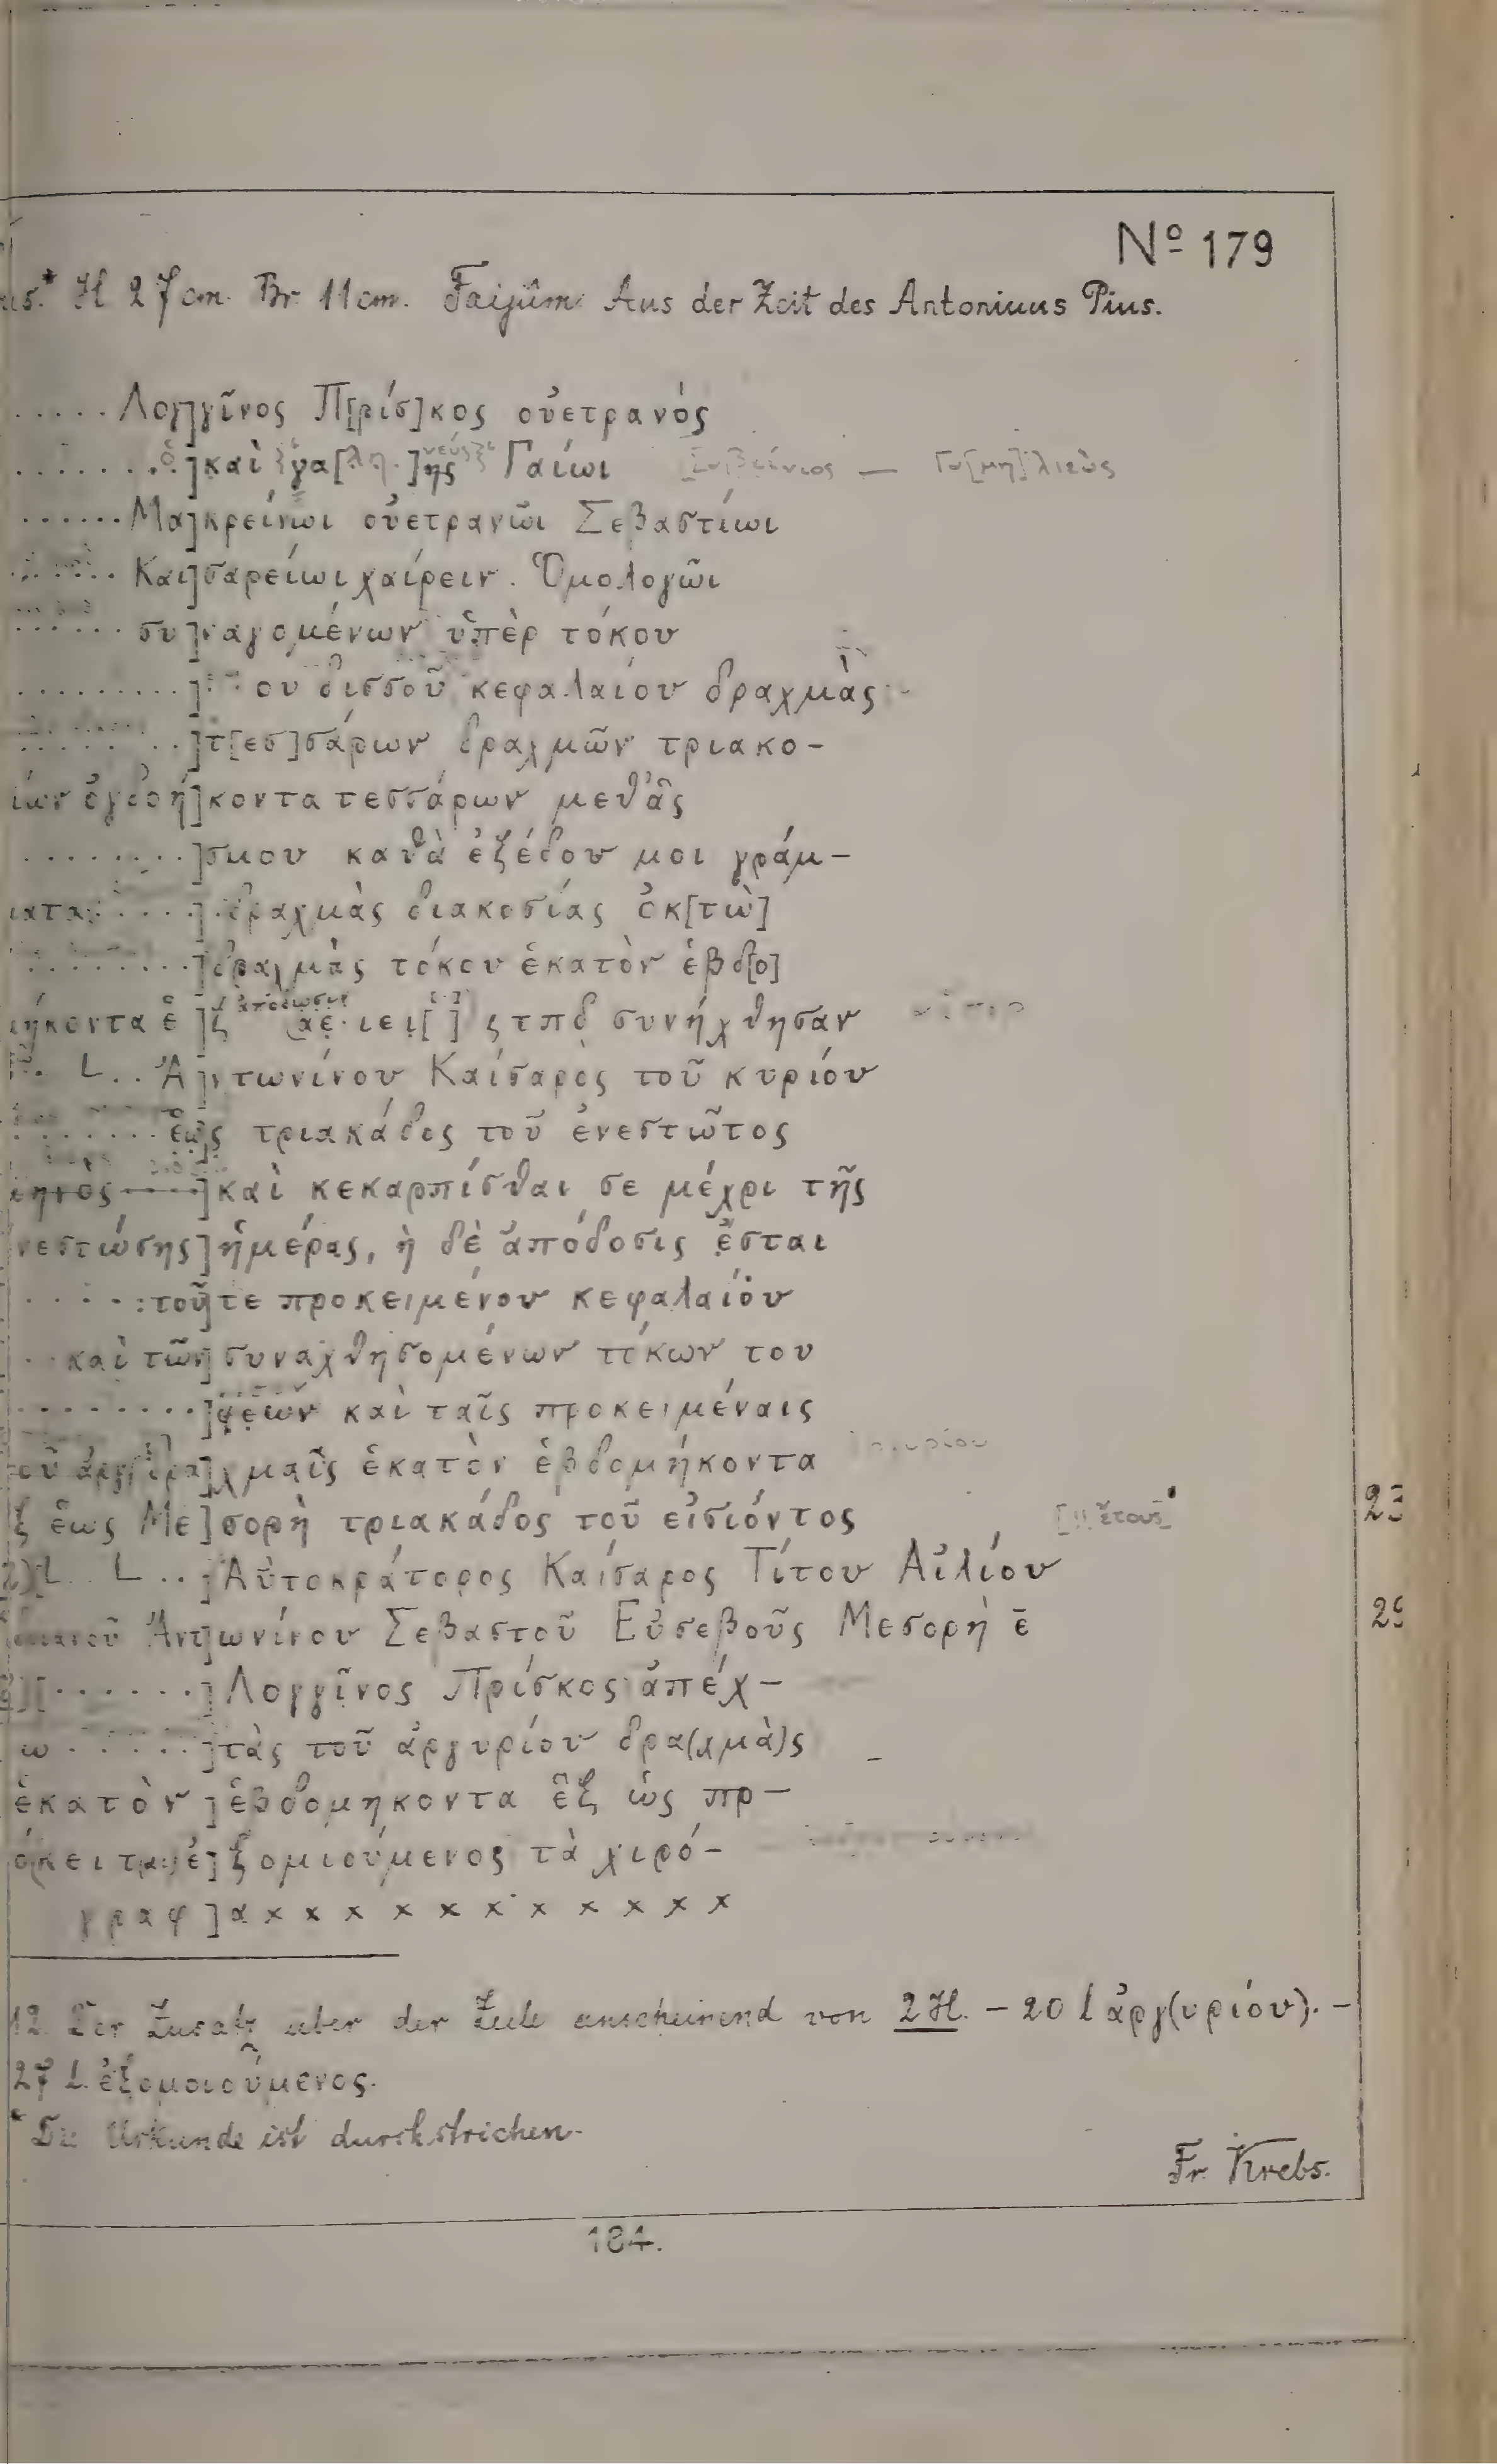 Nº 179
us.* H 27cm. Br. 11cm. Faijûm. Aus der Zeit des Antoninus Pius.
......Λογ]γῖνος Π[ρίσ]κος οὐετρανός
........ὁ]καὶ γα[λη.]ης Γαίωι
......Μα]κρείνωι οὐετρανῶι Σεβαστίωι
Και]σαρείωι χαίρειν. Ὁμολογῶι
......συ]ναγομένων ὑπὲρ τόκου
.........]..ου δισσοῦ κεφαλαίου δραχμὰς
]τ[εσ]σάρων δραχμῶν τριακο-
ίων ὀγδοή]κοντα τεσσάρων μεθ' ἃς
........]σμου καθὰ ἐξέδου μοι γράμ-
ματα.....].δραχμὰς διακοσίας ὀκ[τὼ]
.........]δραχμὰς τόκου ἑκατὸν ἑβδ[ο]
μήκοντα ἕ]ξ αε.ιει[ ] ςτπδ συνήχθησαν
L.. Ἀ]ντωνίνου Καίσαρος τοῦ κυρίου
.......ἕως τριακάδος τοῦ ἐνεστῶτος
μηνὸς----]καὶ κεκαρπίσθαι σε μέχρι τῆς
νεστώσης]ἡμέρας, ἡ δὲ ἀπόδοσις ἔσται
.....τοῦ]τε προκειμένου κεφαλαίου
..καὶ τῶν]συναχθησομένων τόκων του
.........]φεων καὶ ταῖς προκειμέναις
οῦ ἀργ δρα]χμαῖς ἑκατὸν ἑβδομήκοντα
ξ ἕως Με]σορὴ τριακάδος τοῦ εἰσιόντος
L..]Αὐτοκράτορος Καίσαρος Τίτου Αἰλίου
Ἀντ]ωνίνου Σεβαστοῦ Εὐσεβοῦς Μεσορὴ ε̄
[.......]Λογγῖνος Πρίσκος ἀπέχ-
ω......]τὰς τοῦ ἀργυρίου δρα(χμὰ)ς
ἑκατὸν]ἑβδομηκοντα ἓξ ὡς πρ-
όκειται ἐ]ξομιούμενος τὰ χιρό-
γραφ]α x x x x x x x x x x x
12. Der Zusatz über der Zeile anscheinend von 2 H. – 20 l ἀργ(υρίου). –
27 L. ἐξομοιούμενος.
* Die Urkunde ist durchstrichen.
Fr. Krebs.
184.